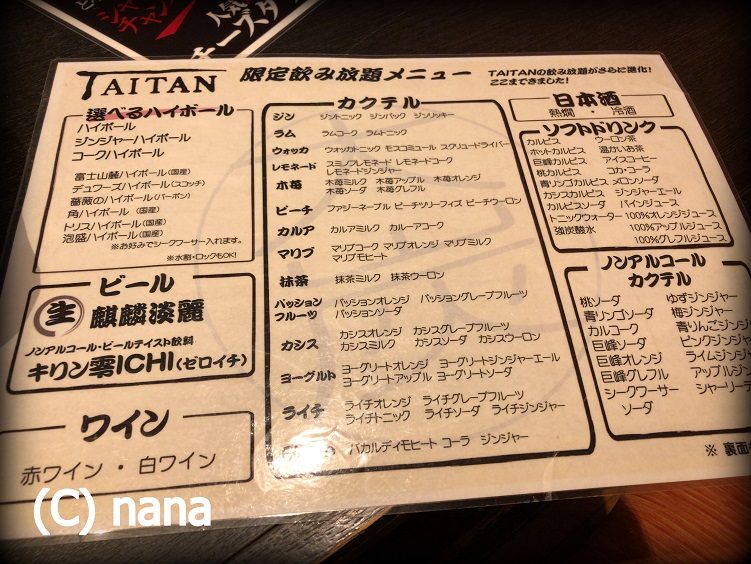 TAITAN 限定飲み放題メニュー
TAITANの飲み放題がさらに進化!
ここまできました!
選べるハイボール
ハイボール
ジンジャーハイボール
コークハイボール
富士山麓ハイボール(国産)
デュワーズハイボール(スコッチ)
薔薇のハイボール(バーボン)
角ハイボール(国産)
トリスハイボール(国産)
泡盛ハイボール(国産)
※お好みでシークワーサー入れます。
※水割・ロックもOK!
ビール
生 麒麟淡麗
ノンアルコール・ビールテイスト飲料
キリン零ICHI(ゼロイチ)
ワイン
赤ワイン・白ワイン
カクテル
ジン ジントニック ジンバック ジンリッキー
ラム ラムコーク ラムトニック
ウォッカ ウォッカトニック モスコミュール スクリュードライバー
レモネード スミノフレモネード レモネードコーク
レモネードジンジャー
木苺 木苺ミルク 木苺アップル 木苺オレンジ
木苺ソーダ 木苺グレフル
ピーチ ファジーネーブル ピーチツリーフィズ ピーチウーロン
カルア カルアミルク カルーアコーク
マリブ マリブコーク マリブオレンジ マリブミルク
マリブモヒート
抹茶 抹茶ミルク 抹茶ウーロン
パッションフルーツ パッションオレンジ パッショングレープフルーツ
パッションソーダ
カシス カシスオレンジ カシスグレープフルーツ
カシスミルク カシスソーダ カシスウーロン
ヨーグルト ヨーグリートオレンジ ヨーグリートジンジャーエール
ヨーグリートアップル ヨーグリートソーダ
ライチ ライチオレンジ ライチグレープフルーツ
ライチトニック ライチソーダ ライチジンジャー
バカルディモヒート コーラ ジンジャー
日本酒
熱燗・冷酒
ソフトドリンク
カルピス ウーロン茶
ホットカルピス 温かいお茶
巨峰カルピス アイスコーヒー
桃カルピス コカ・コーラ
青リンゴカルピス メロンソーダ
カシスカルピス ジンジャーエール
カルピスソーダ パインジュース
トニックウォーター 100%オレンジジュース
強炭酸水 100%アップルジュース
100%グレフルジュース
ノンアルコール
カクテル
桃ソーダ ゆずジンジャー
青リンゴソーダ 梅ジンジャー
カルコーク 青りんごジンジャー
巨峰ソーダ ピンクジンジャー
巨峰オレンジ ライムジンジャ
巨峰グレフル アップルジン
シークワーサー シャーリー
ソーダ
※ 裏面
(C) nana